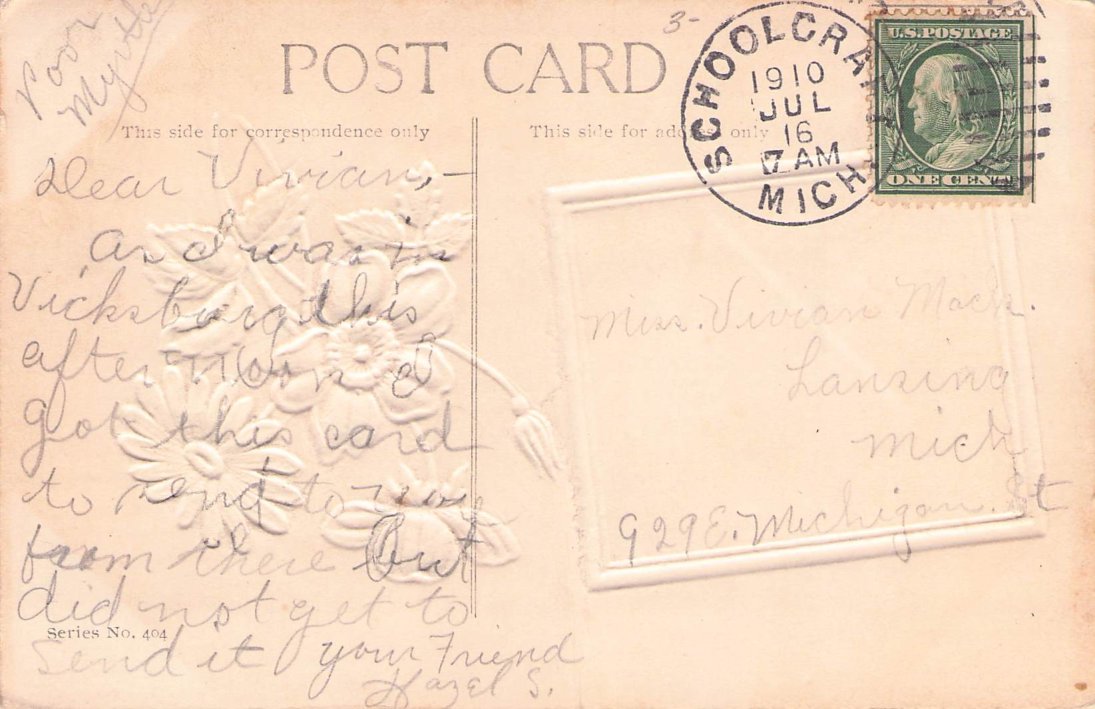 Poor
Myrtle
3-
POST CARD
This side for correspondence only
This side for address only
SCHOOLCRAFT
1910
JUL
16
7 AM
MICH.
U.S. POSTAGE
ONE CENT
Dear Vivian,-
and was in
Vicksburg this
afternoon I
got this card
to send to you
from there but
did not get to
send it your Friend
Hazel S.
Series No. 404
Miss. Vivian Mack.
Lansing
Mich
929 E. Michigan. St